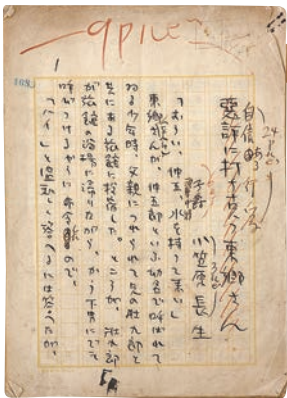 9ポ16
1
自信ある行為
悪評に打克つ東郷さん
子爵 小笠原長生
「おうい、仲五、水を持つて来い」
東郷さんが、仲五郎といふ幼名で呼ばれて
ゐる少年時、父親につれられて兄の壮九郎と
共にある旅館に投宿した。ところが、壮九郎
が旅館の浴場に浸りながら、かう下男にでも
呼びつけるやうに命令したので、
「ハイ」と温和しく答へるには答へたが、